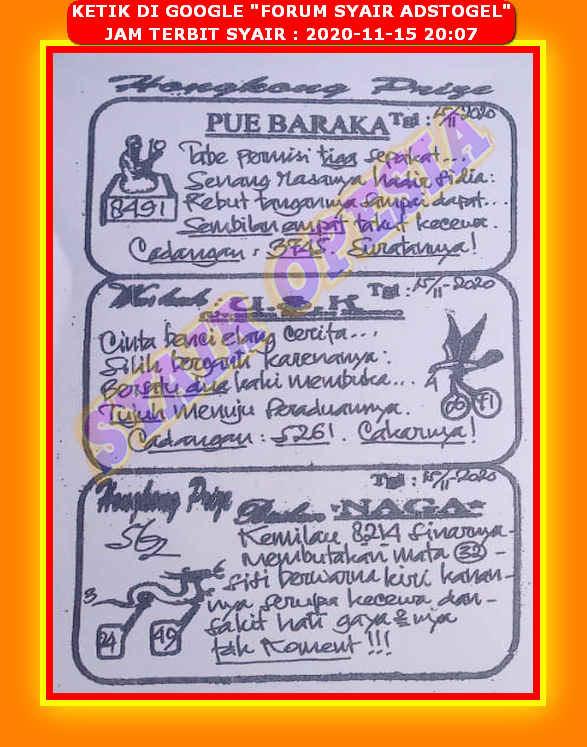 KETIK DI GOOGLE "FORUM SYAIR ADSTOGEL"
JAM TERBIT SYAIR : 2020-11-15 20:07
Hongkong Prize
PUE BARAKA Tgl : 15/11-2020
Tabe permisi tiga sepakat...
Senang rasanya hadir sidia:
8491
Rebut tangannya sampai dapat...
Sembilan empat takut kecewa.
Cadangan : 3745 Suratannya!
SYAIR OPESIA
Tgl : 15/11-2020
Cinta benci elang cerita...
Silih berganti karenanya:
Bersatu dua kaki membuka... 4
Tujuh menuju Peraduannya.
71
Cadangan : 5261. Cakarnya!
Tgl : 15/11-2020
Hongkong Prize
*NAGA*
562
Kemilau 8214 Sinarnya-
membutakan mata 32 -
Sisi berwarna kiri kanan-
3
nya serupa kecewa dan-
24 49
Sakit hati gaya nya
tak Koment !!!